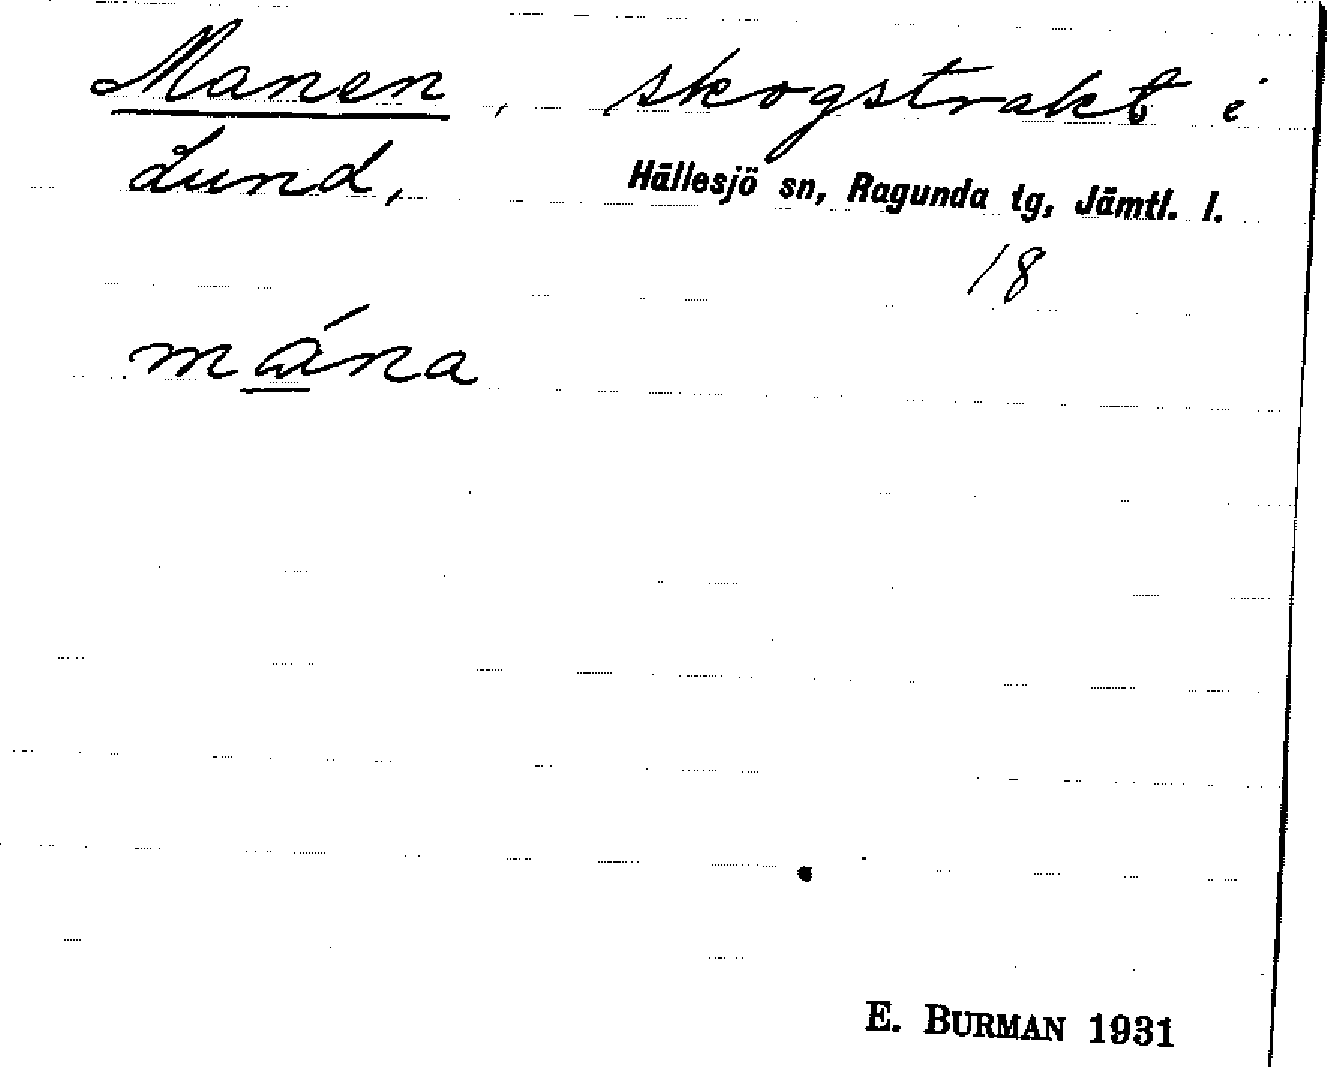 Manen, skogstrakt i
Lund, Hällesjö sn, Ragunda tg, Jämtl. l.
18
mána
E. BURMAN 1931